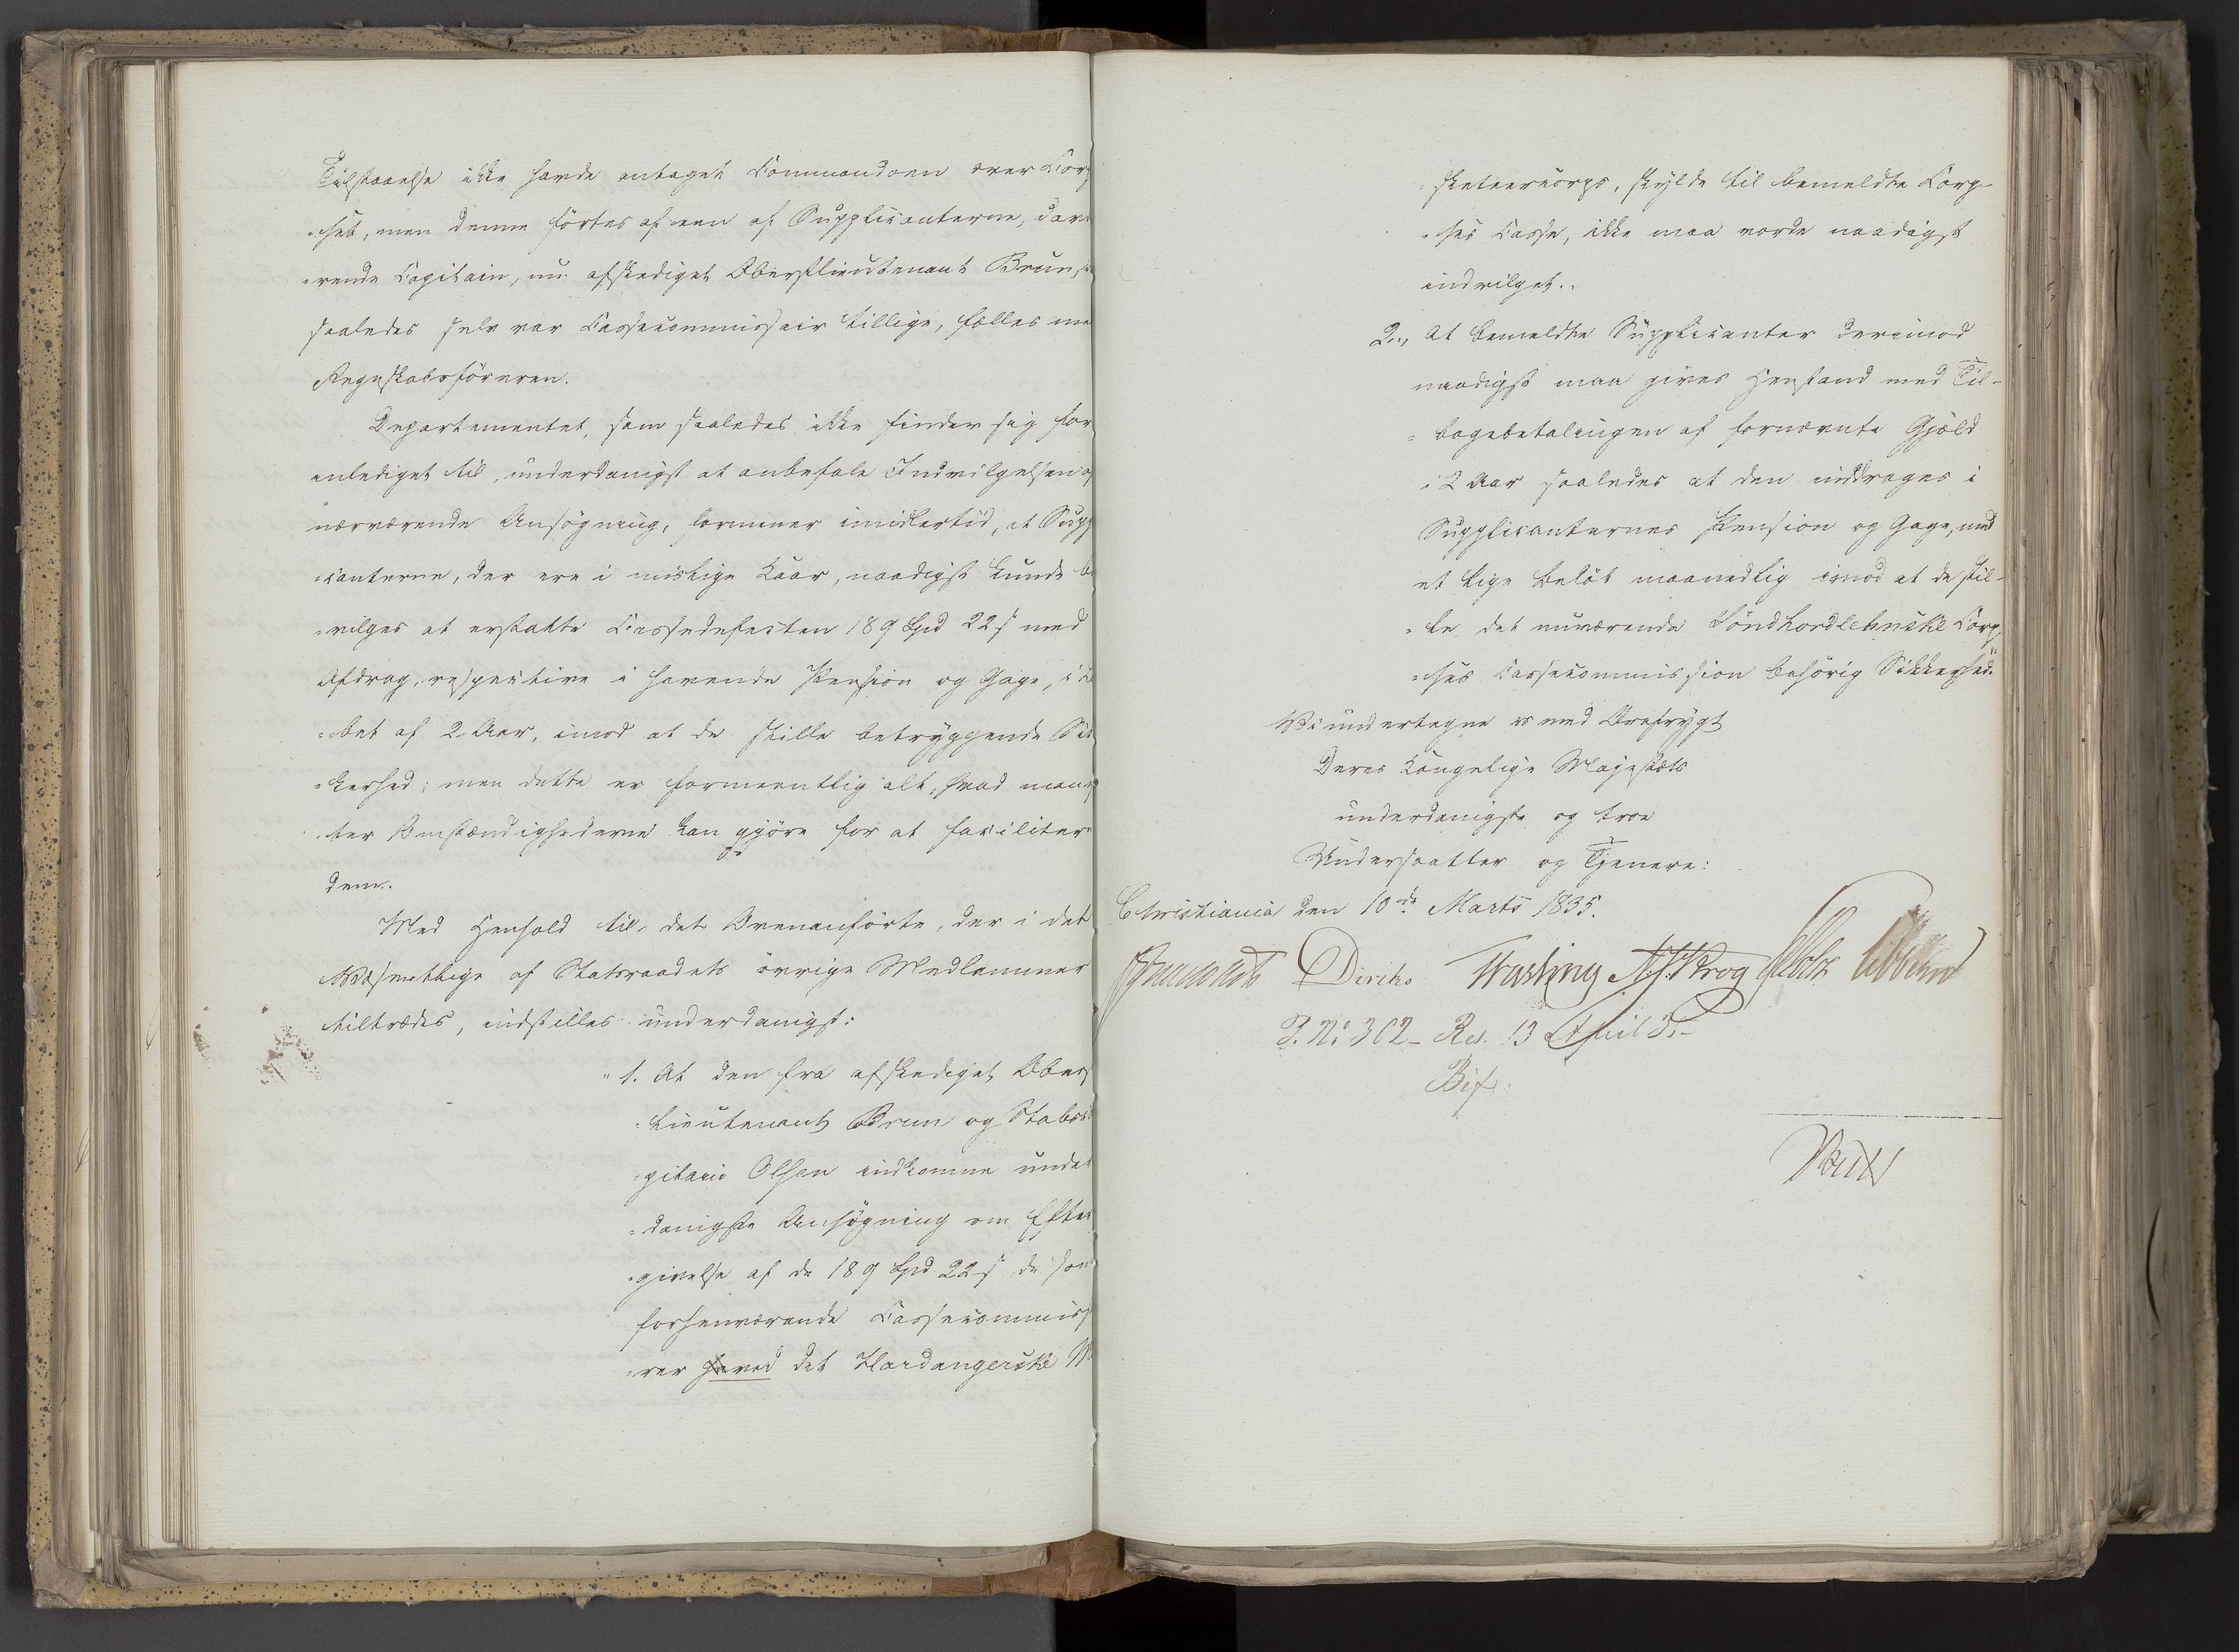 Tilstaaelse ikke havde antaget Commandoen over Corp
"set, men denne førtes af een af Supplicanterne, dava
"rende Capitain, nu afskediget Oberstlieutenant Brun,
saaledes selv var Cassecommissair tillige, fælles me
Regnskabsføreren.
Departementet, som saaledes ikke finder sig for
anlediget til, underdanigst at anbefale Indvilgelsen af
nærværende Ansøgning, formener imidlertid, at Supp
"canterne, der ere i mislige Kaar, naadigst kunde be
"vilges at erstatte Cassedefecten 189 Spd 22 s med
Afdrag, respective i havende Pension og Gage, i Lø
"bet af 2 Aar, imod at de stille betryggende Sik
"kerhed; men dette er formeentlig alt, hvad man ef
"ter Omstændighederne kan gjöre for at facilitere
dem.
Med Henhold til det Ovenanførte, der i det
Væsentlige af Statsraadets øvrige Medlemmer
tiltrædes, indstilles underdanigst:
"1. At den fra afskediget Oberst
"lieutenant Brun og Stabsca
"pitain Olsen indkomne under
"danigste Ansøgning om Efter
"givelse af de 189 Spd 22 s de som
forhenværende Cassecommiss
"rer ved det Hardangerske M
sketeercorps, skylde til bemeldte Corp
"ses Casse, ikke maa vorde naadigst
indvilget.
2., At bemeldte Supplicanter derimod
naadigst maa gives Henstand med Til-
"bagebetalingen af fornævnte Gjæld
i 2 Aar saaledes at den inddrages i
Supplicanternes Pension og Gage, med
et lige Beløb maanedlig imod at de stil-
"le det nuværende Söndhordlehnske Corp
"ses Cassecommission behørig Sikkerhed."
Vi undertegne os med Ærefrygt
Deres Kongelige Majestæts
underdanigste og troe
Undersaatter og Tjenere:
Christiania den 10de Marts 1835.
Diriks Fasting A. J. Krog
P. No 302 - Res. 13 April 35
Bif.